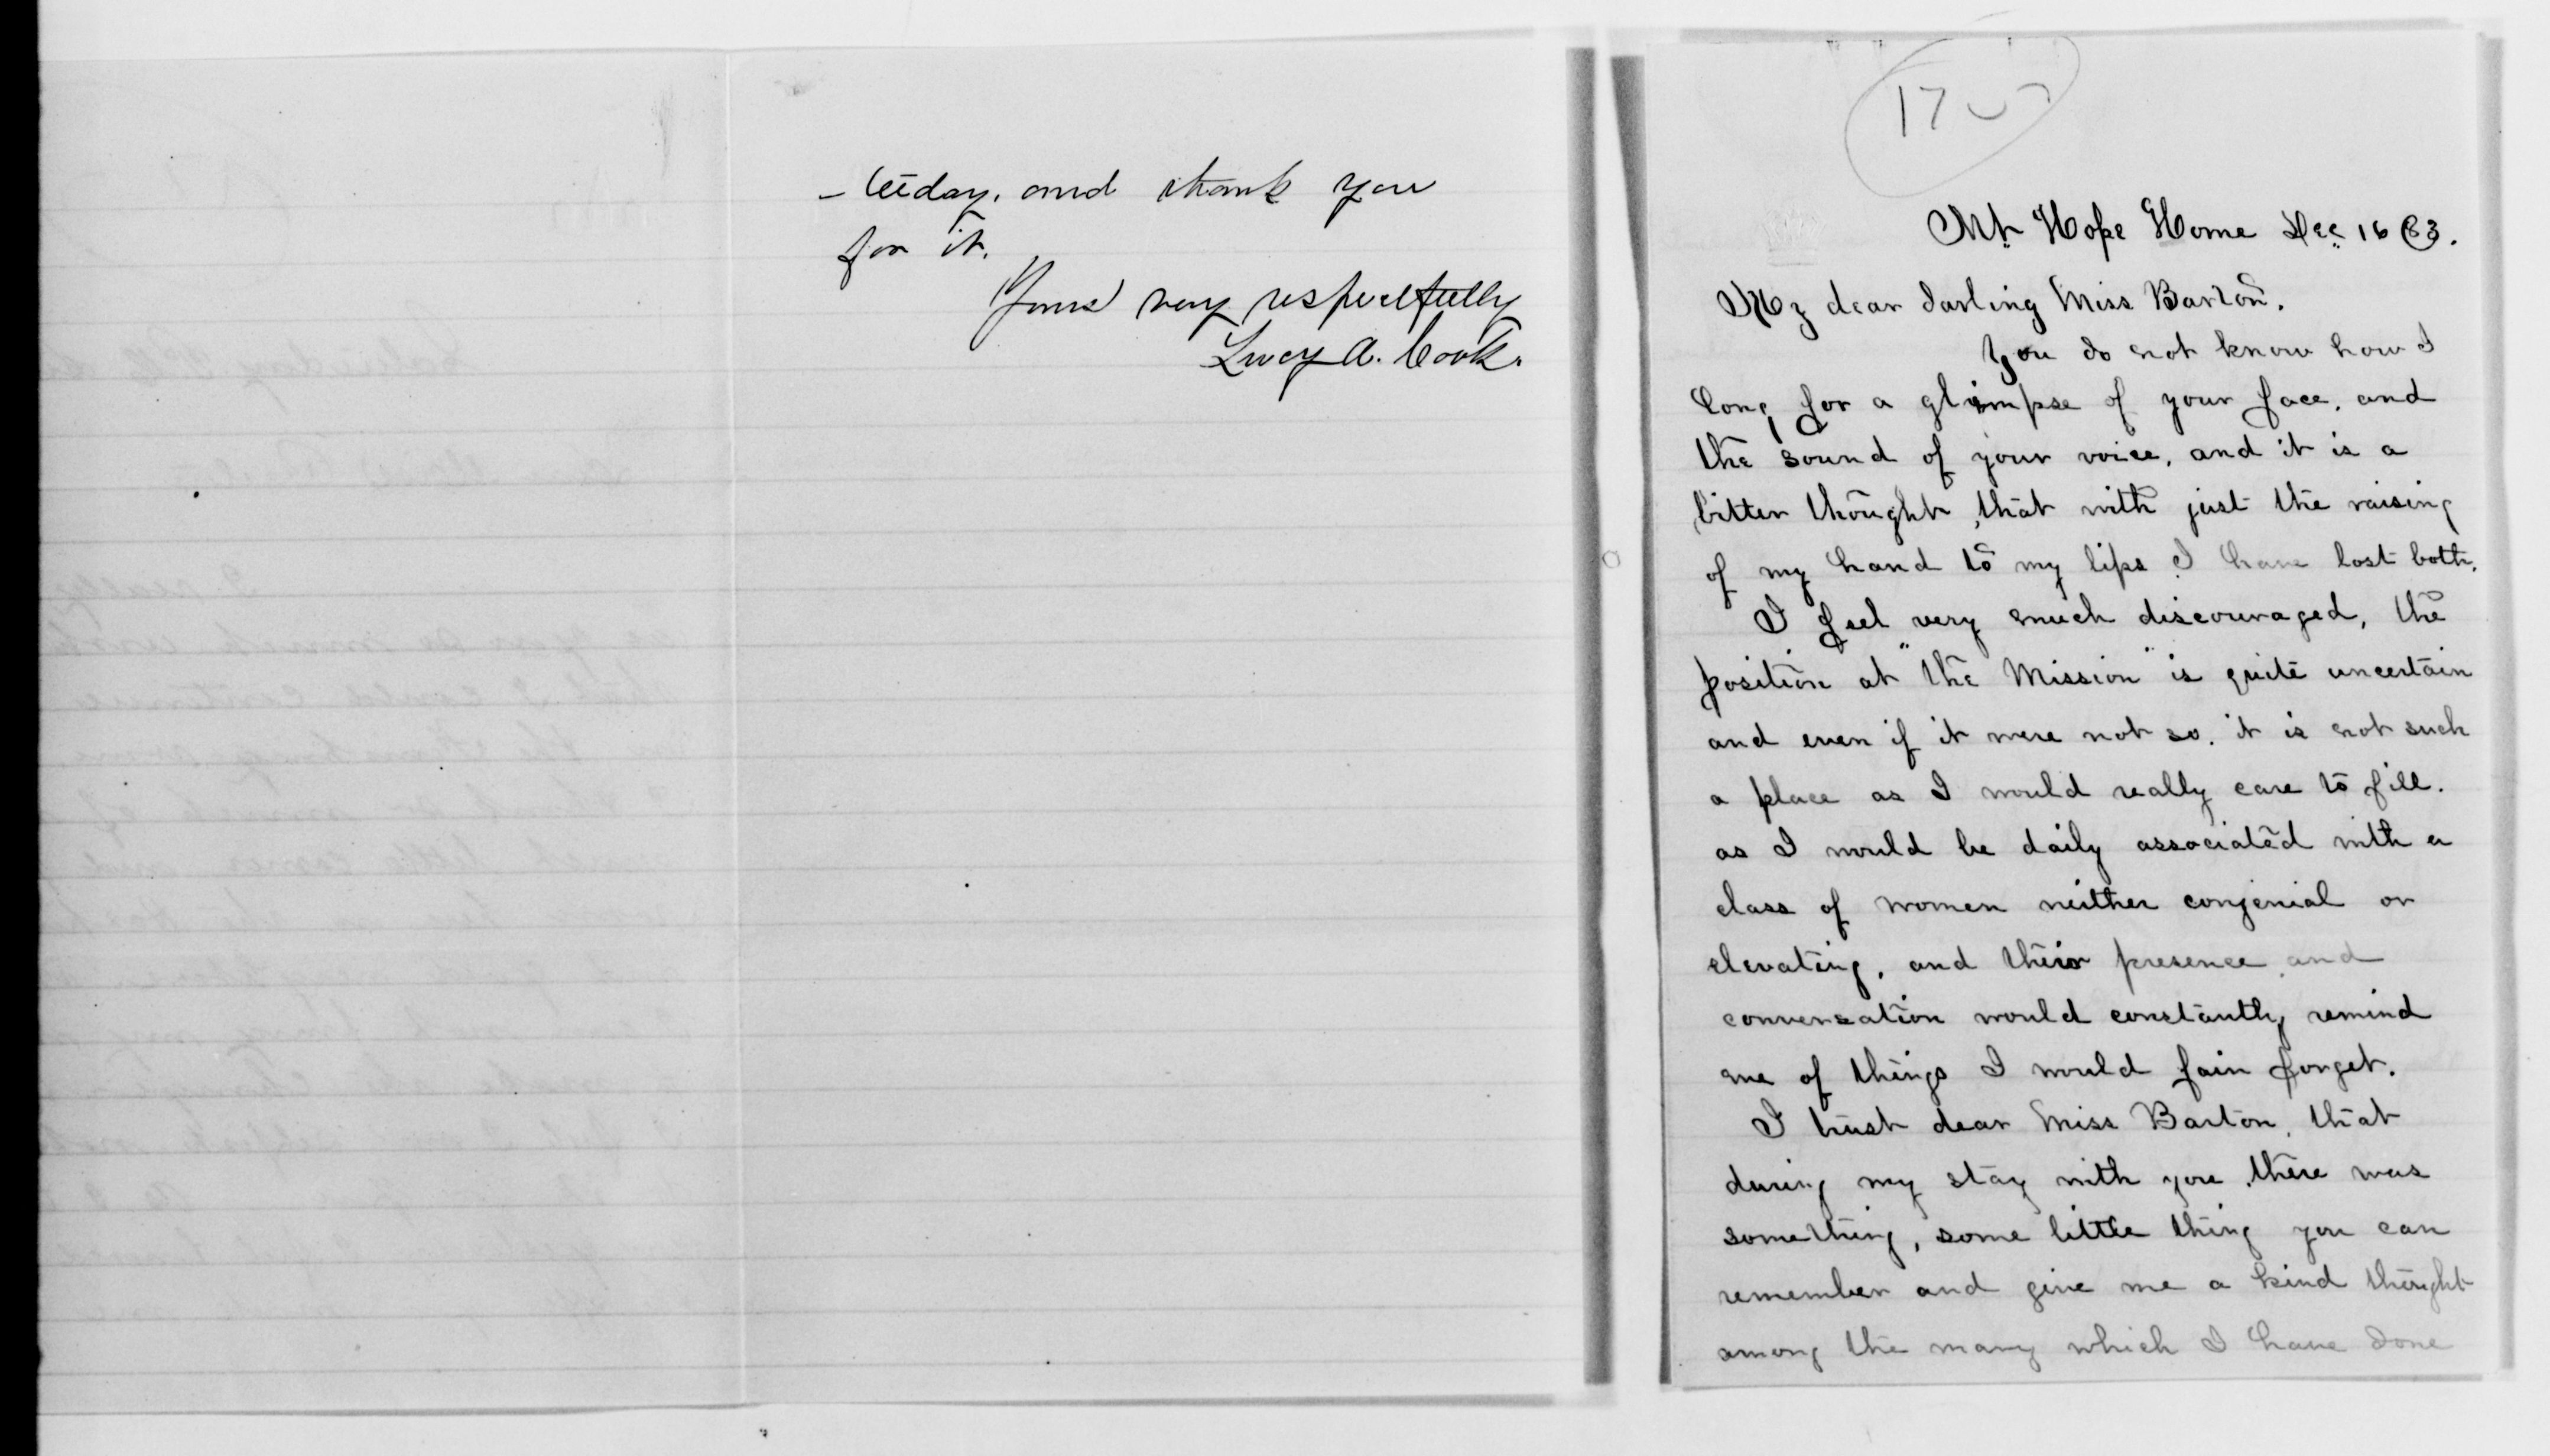 -titday. and thank you
for it.
Yours very respectfully
Lucy A. Cook.
Mt Hope Home Dec 16 83.
My dear darling Miss Barton.
You do not know how I
long for a glimpse of your face, and
the sound of your voice, and it is a
bitter thought, that with just the raising
of my hand to my lips I have lost both.
I feel very much discouraged, the
position at "the Mission" is quite uncertain
and even if it were not so. it is not such
a place as I would really care to fill.
as I would be daily associated with a
class of women neither congenial or
elevating, and their presence and
conversation would constantly remind
me of things I would fain forget.
I trust dear Miss Barton, that
during my stay with you, there was
something, some little thing you can
remember and give me a kind thought
among the many which I have done